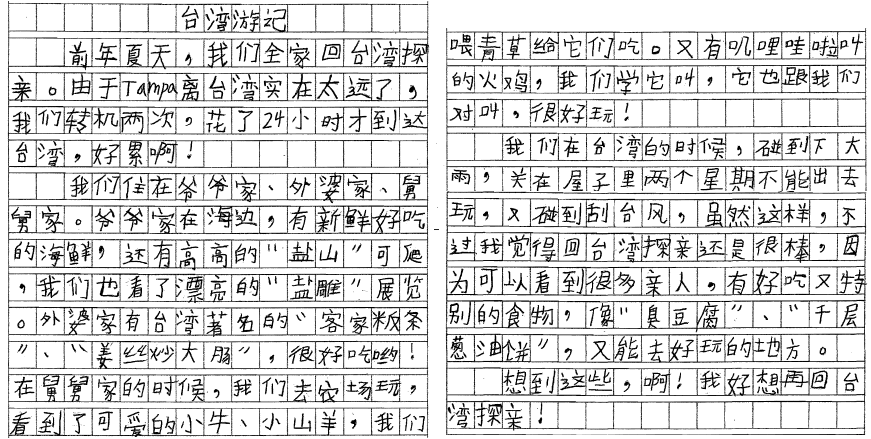 台湾游记
前年夏天，我们全家回台湾探
亲。由于Tampa离台湾实在太远了，
我们转机两次，花了24小时才到达
台湾，好累啊！
我们住在爷爷家、外婆家、舅
舅家。爷爷家在海边，有新鲜好吃
的海鲜，还有高高的“盐山”可爬
，我们也看了漂亮的“盐雕”展览
。外婆家有台湾著名的“客家粄条
”、“姜丝炒大肠”，很好吃哟！
在舅舅家的时候，我们去农场玩，
看到了可爱的小牛、小山羊，我们
喂青草给它们吃。又有叽哩哇啦叫
的火鸡，我们学它叫，它也跟我们
对叫，很好玩！
我们在台湾的时候，碰到下大
雨，关在屋子里两个星期不能出去
玩，又碰到刮台风，虽然这样，不
过我觉得回台湾探亲还是很棒，因
为可以看到很多亲人，有好吃又特
别的食物，像“臭豆腐”、“千层
葱油饼”，又能去好玩的地方。
想到这些，啊！我好想再回台
湾探亲！